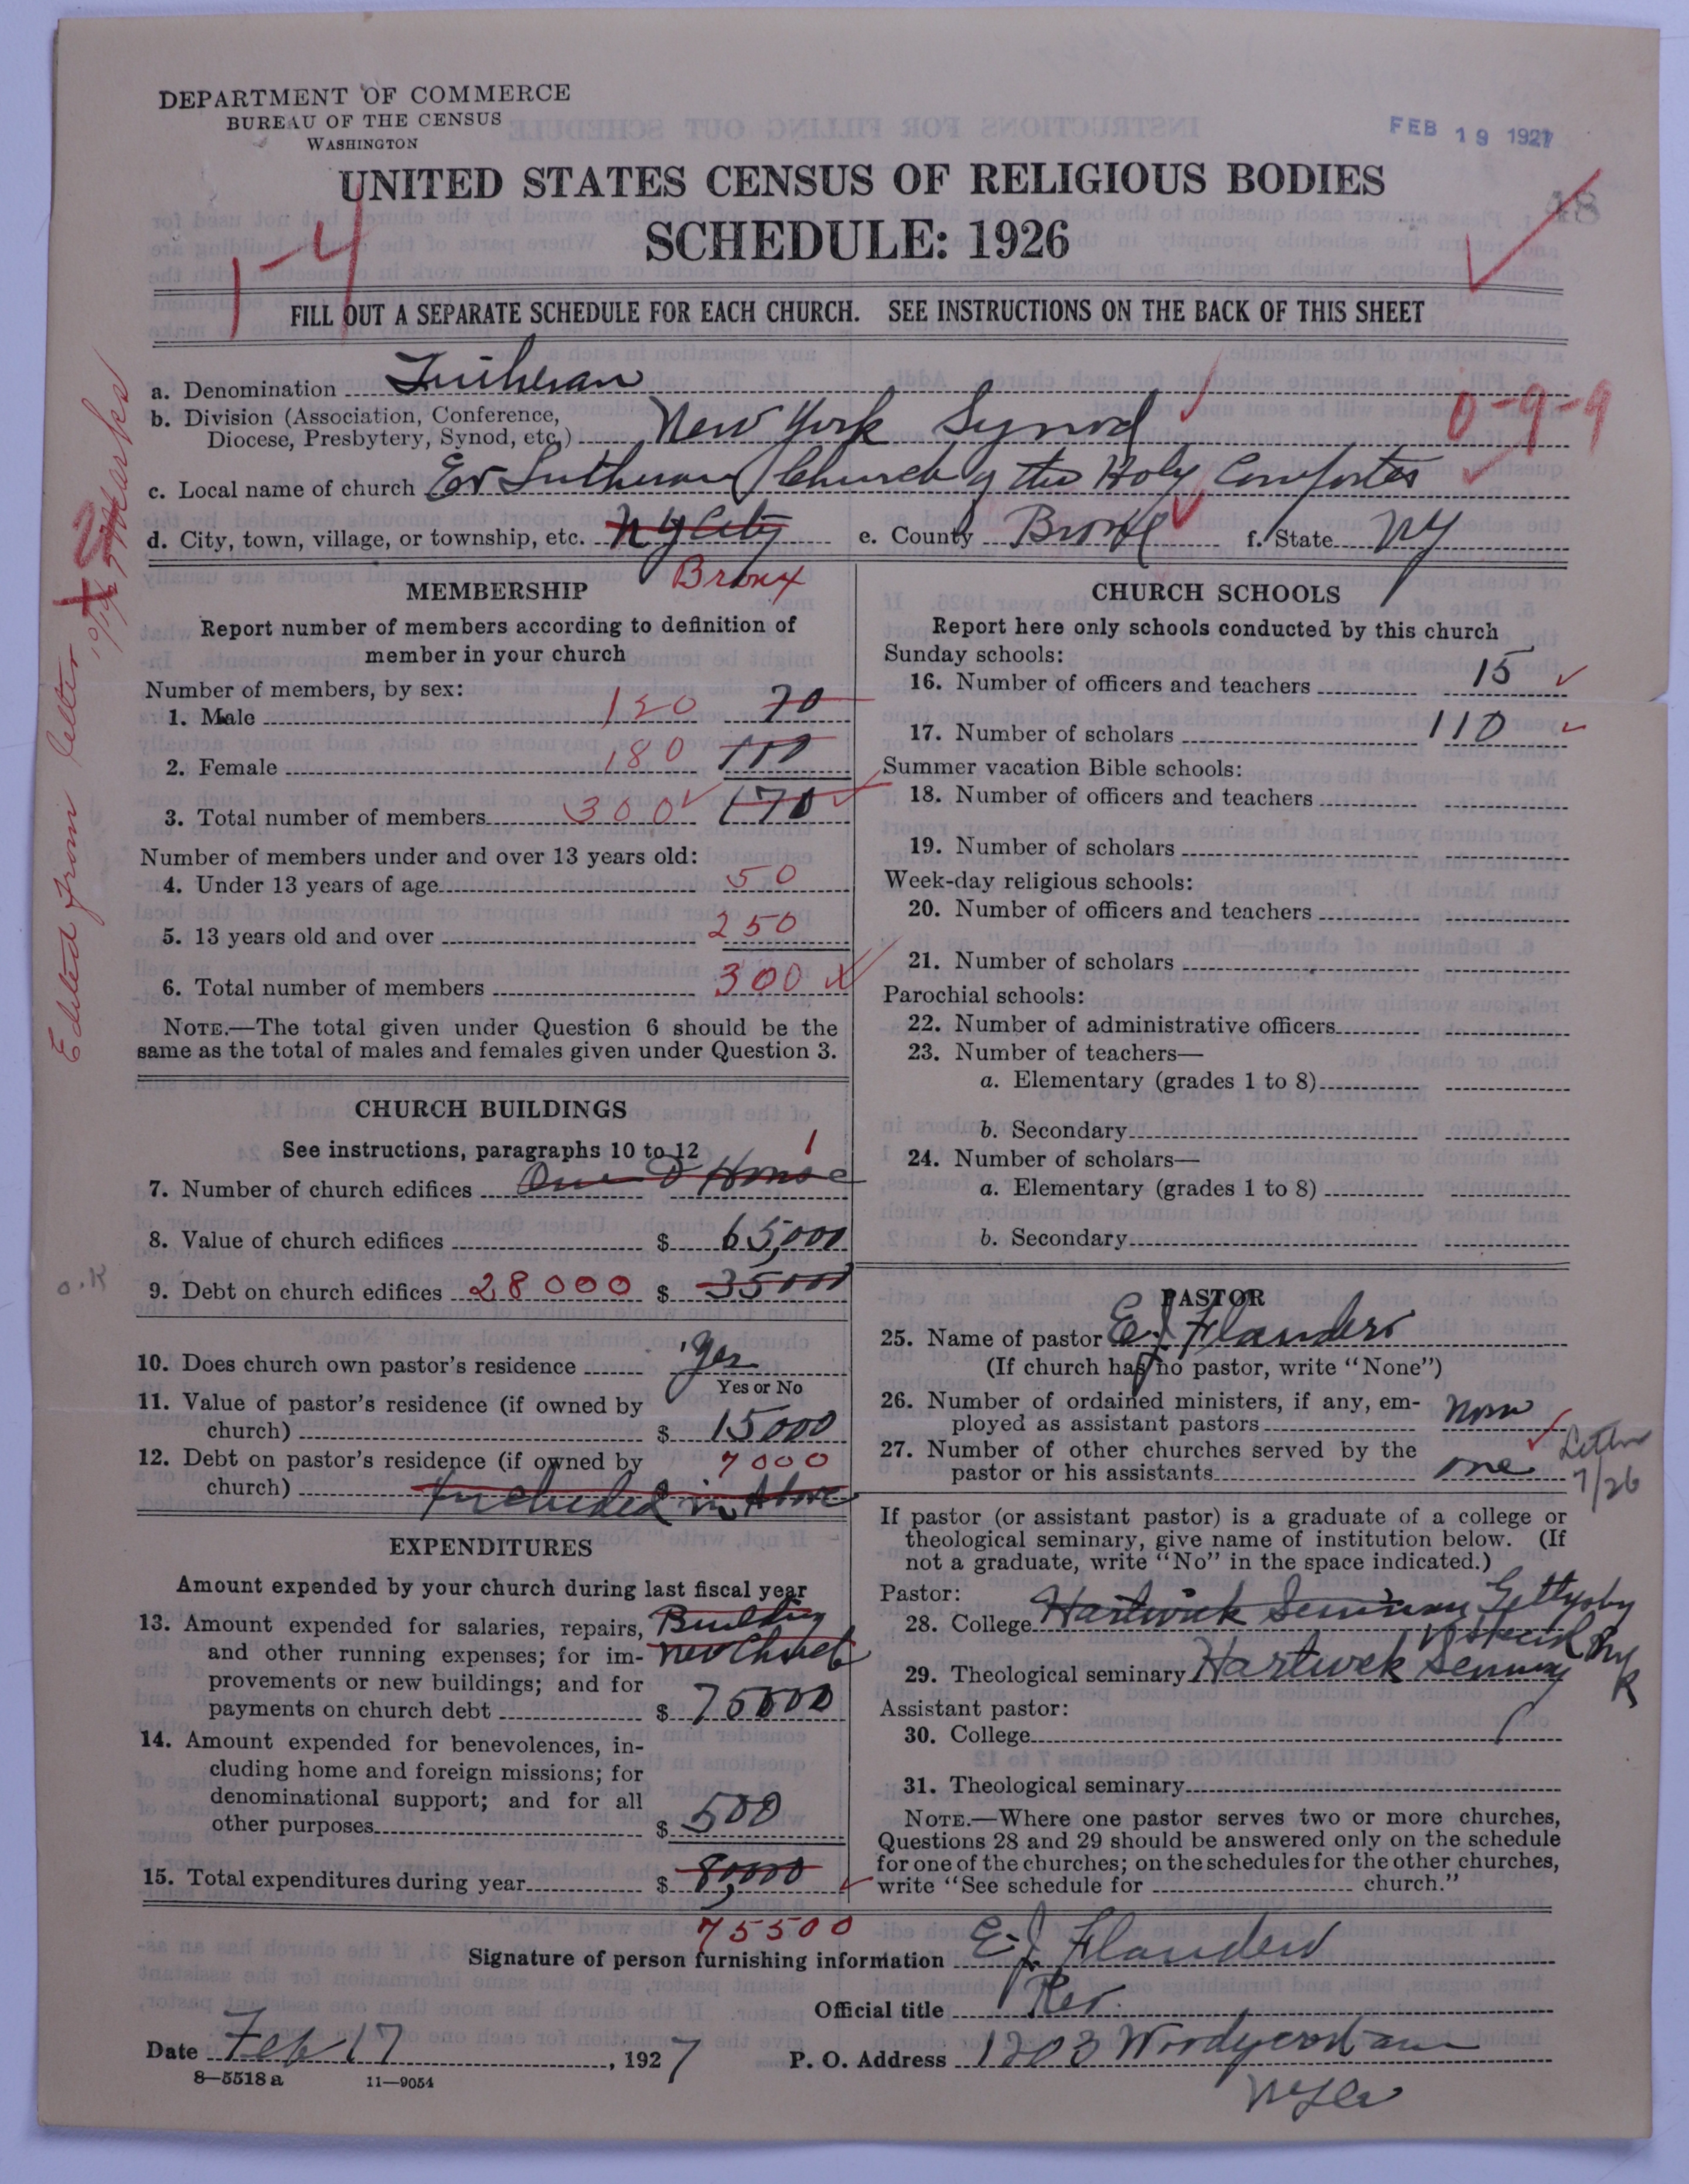 DEPARTMENT OF COMMERCE
BUREAU OF THE CENSUS
WASHINGTON
FEB 19 1927
UNITED STATES CENSUS OF RELIGIOUS BODIES
48
SCHEDULE: 1926
1-4
FILL OUT A SEPARATE SCHEDULE FOR EACH CHURCH. SEE INSTRUCTIONS ON THE BACK OF THIS SHEET
a. Denomination Lutheran
b. Division (Association, Conference,
Diocese, Presbytery, Synod, etc.) New York Synod 0-9-9
c. Local name of church Ev Lutheran Church of the Holy Comforter
d. City, town, village, or township, etc. N Y City e. County Bronx f. State NY
Bronx
Edited from letter
remarks
MEMBERSHIP
Report number of members according to definition of
member in your church
Number of members, by sex:
1. Male 120 70
2. Female 180 100
3. Total number of members 300 170
Number of members under and over 13 years old:
4. Under 13 years of age 50
5. 13 years old and over 250
6. Total number of members 300
NOTE.—The total given under Question 6 should be the
same as the total of males and females given under Question 3.
CHURCH BUILDINGS
See instructions, paragraphs 10 to 12
1
7. Number of church edifices One House
8. Value of church edifices $ 65,000
o.K
9. Debt on church edifices 28000 $ 35000
10. Does church own pastor's residence yes
Yes or No
11. Value of pastor's residence (if owned by
church) $ 15000
12. Debt on pastor's residence (if owned by 7000
church) Included in Above
EXPENDITURES
Amount expended by your church during last fiscal year
13. Amount expended for salaries, repairs, Building
and other running expenses; for im- New Church
provements or new buildings; and for
payments on church debt $ 75000
14. Amount expended for benevolences, in-
cluding home and foreign missions; for
denominational support; and for all
other purposes $ 500
15. Total expenditures during year $ 8,000
75500
CHURCH SCHOOLS
Report here only schools conducted by this church
Sunday schools:
16. Number of officers and teachers 15
17. Number of scholars 110
Summer vacation Bible schools:
18. Number of officers and teachers
19. Number of scholars
Week-day religious schools:
20. Number of officers and teachers
21. Number of scholars
Parochial schools:
22. Number of administrative officers
23. Number of teachers—
a. Elementary (grades 1 to 8)
b. Secondary
24. Number of scholars—
a. Elementary (grades 1 to 8)
b. Secondary
PASTOR
25. Name of pastor E J Flanders
(If church has no pastor, write "None")
26. Number of ordained ministers, if any, em-
ployed as assistant pastors None
27. Number of other churches served by the
pastor or his assistants one
Letter
7/26
If pastor (or assistant pastor) is a graduate of a college or
theological seminary, give name of institution below. (If
not a graduate, write "No" in the space indicated.)
Pastor:
28. College Hartwick Seminary Gettysby
29. Theological seminary Hartwick Seminary
Assistant pastor:
30. College
31. Theological seminary
NOTE.—Where one pastor serves two or more churches,
Questions 28 and 29 should be answered only on the schedule
for one of the churches; on the schedules for the other churches,
write "See schedule for church."
Signature of person furnishing information E. J. Flanders
Official title Rev.
Date Feb 17, 1927 P. O. Address 1203 Woodycrest ave
8—5518 a 11—9054